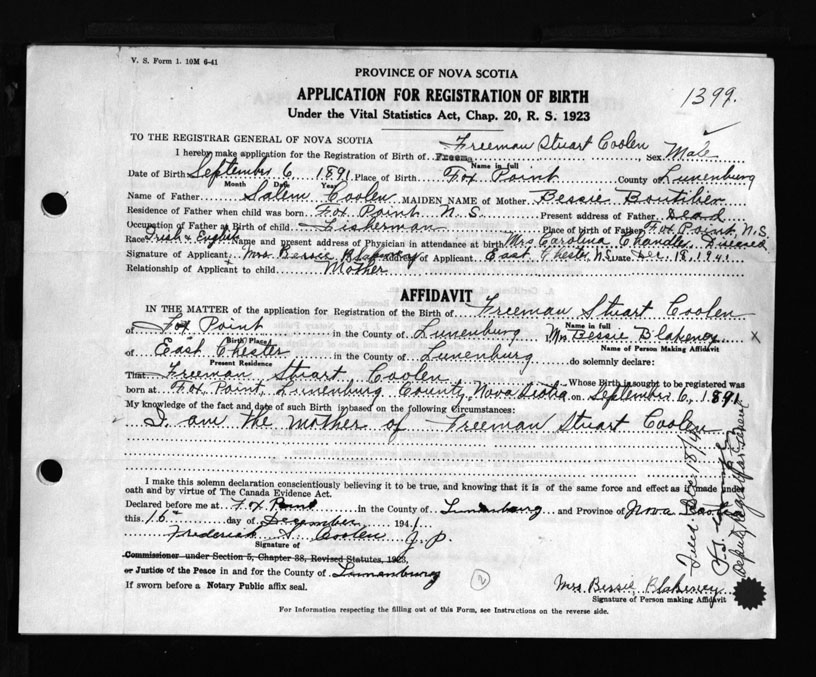 V. S. Form 1. 10M 6-41
PROVINCE OF NOVA SCOTIA
APPLICATION FOR REGISTRATION OF BIRTH
1399.
Under the Vital Statistics Act, Chap. 20, R. S. 1923
TO THE REGISTRAR GENERAL OF NOVA SCOTIA
I hereby make application for the Registration of Birth of Freeman Stuart Coolen, Sex Male
Name in full
Date of Birth September 6, 1891 Place of Birth Fox Point County of Lunenburg
Month Date Year
Name of Father Salem Coolen MAIDEN NAME of Mother Bessie Boutilier
Residence of Father when child was born Fox Point N.S. Present address of Father Dead
Occupation of Father at Birth of child Fisherman Place of birth of Father Fox Point, N.S.
Race Irish & English Name and present address of Physician in attendance at birth Mrs Carolina Chandler, Diseased
Signature of Applicant Mrs. Bessie Blakeney of Applicant East Chester, N.S. Date Dec. 18, 1941
Relationship of Applicant to child Mother
AFFIDAVIT
IN THE MATTER of the application for Registration of the Birth of Freeman Stuart Coolen
Name in full
of Fox Point in the County of Lunenburg Mrs Bessie Blakeney X
Birth Place Name of Person Making Affidavit
of East Chester in the County of Lunenburg do solemnly declare:
Present Residence
That Freeman Stuart Coolen Whose Birth is sought to be registered was
born at Fox Point, Lunenburg County, Nova Scotia on September 6, 1891
My knowledge of the fact and date of such Birth is based on the following Circumstances:
I am the mother of Freeman Stuart Coolen
I make this solemn declaration conscientiously believing it to be true, and knowing that it is of the same force and effect as if made under
oath and by virtue of The Canada Evidence Act.
Declared before me at Fox Point in the County of Lunenburg and Province of Nova Scotia
this 16 day of December 1941
Frederick S Coolen J.P.
Signature of
Commissioner under Section 5, Chapter 38, Revised Statutes, 1923,
or Justice of the Peace in and for the County of Lunenburg
If sworn before a Notary Public affix seal.
2
Mrs. Bessie Blakeney
Signature of Person making Affidavit
For Information respecting the filling out of this Form, see Instructions on the reverse side.
Dec 18/41
Deputy Registrar General